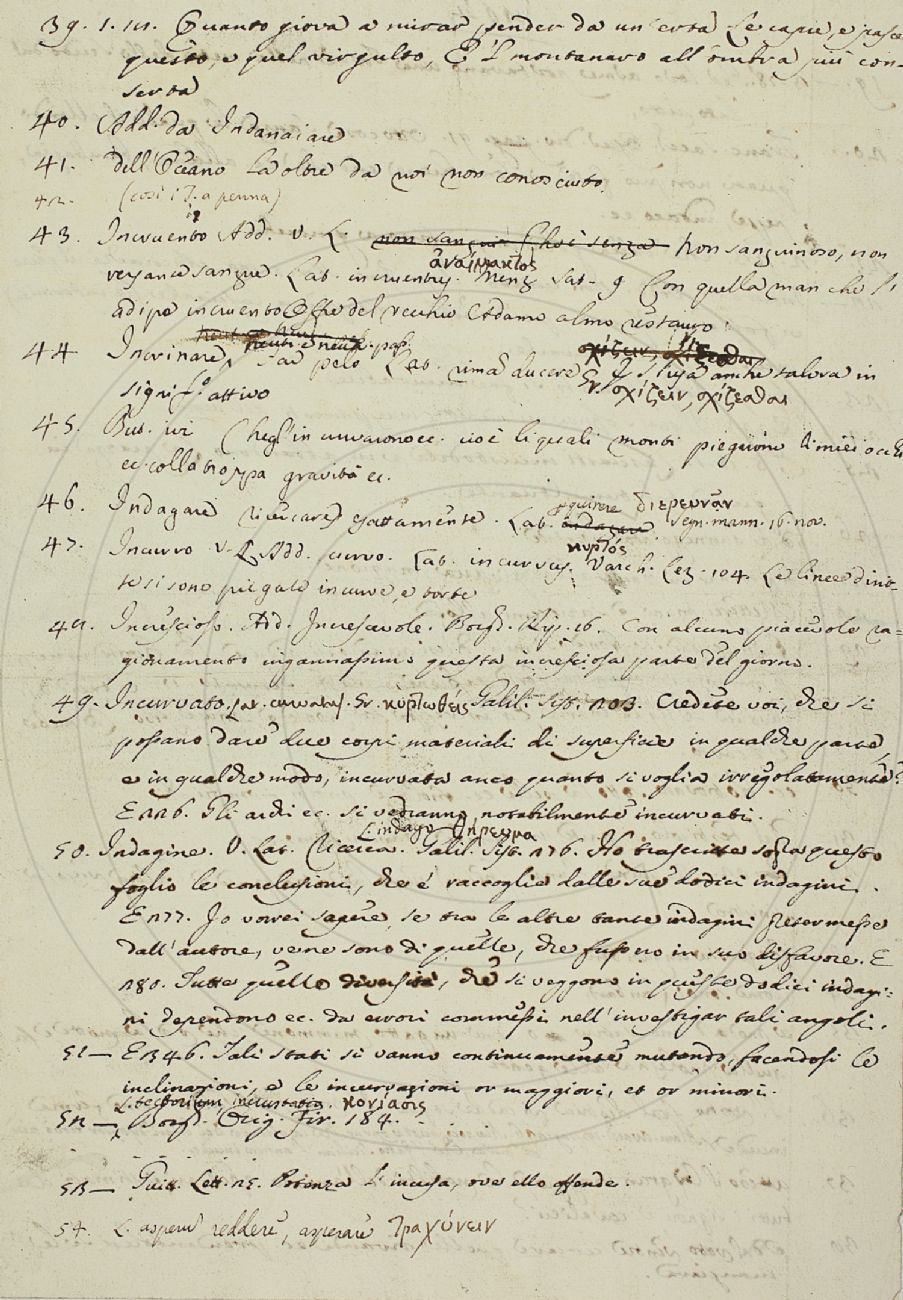 39. 1. 111. Quanto giova a mirar pender da un'erta Le capre, e pasce
questo, e quel virgulto, E 'l montanaro all'ombra più con-
serta
40. Add. da Indanaiare
41. dell'Oceano La oltre da noi non conosciuto
42. (così i T. a penna)
43. Incruento Add. V. L. non sangui Cho è senza Non sanguinoso, non
ἀναίμακτος
versante sangue. Lat. incruentus. Menz. Sat. 9 Con quella man che l'
adipe incruento Offre del vecchio Adamo almo restauro
44 Incrinare, Far pelo Lat. rimas ducere Si usa anche talora in
σχίζειν, σχίζεσθαι
signif.o attivo
Gr. σχίζειν, σχίζεσθαι
45. But. ivi Che gl'incurvarono ec. cioè li quali monti piegarono li miei occhi
ec. colla troppa gravità ec.
46. Indagare Ricercare esattamente. Lat. indagare Segn. mann. 16. nov.
exquirere διερευνᾶν
47. Incurvo V. L. Add. curvo. Lat. incurvus. Varch. Lez. 104. Le linee diritte
κυρτός
te si sono piegate incurve, e torte
48. Increscioso. Add. Increscevole. Borgh. Rip. 16. Con alcuno piacevole ra=
gionamento ingannassimo questa incresciosa parte del giorno.
49. Incurvato. Lat. curvatus. Gr. κυρτωθείς Galil. Sist. 203. Credete voi, che si
possano dare due corpi materiali di superficie in qualche parte,
e in qualche modo, incurvata anco quanto si voglia irregolatamente?
E 226. Gli archi ec. si vedranno notabilmente incurvati.
L. indago θήρευμα
50. Indagine. V. Lat. Ricerca. Galil. Sist. 276. Ho trascritte sopra questo
foglio le conclusioni, che e' raccoglie dalle sue dodici indagini.
E 277. Io vorrei sapere, se tra le altre tante indagini pretermesse
dall'autore, ve ne sono di quelle, che fussero in suo disfavore. E
280. Tutte quelle diversità, che si veggono in queste dodici indagi-
ni dependono ec. da errori commessi nell'investigar tali angoli.
51— E 346. Tali stati si vanno continuamente mutando, facendosi le
inclinazioni, e le incurvazioni or maggiori, et or minori.
L. tectorium incrustatio. κονίασις
52— Borgh. Orig. Fir. 184.
53— Guitt. Lett. 25. Potenza l'incusa, ove ello offende.
54. L. asperum reddere, asperare τραχύνειν